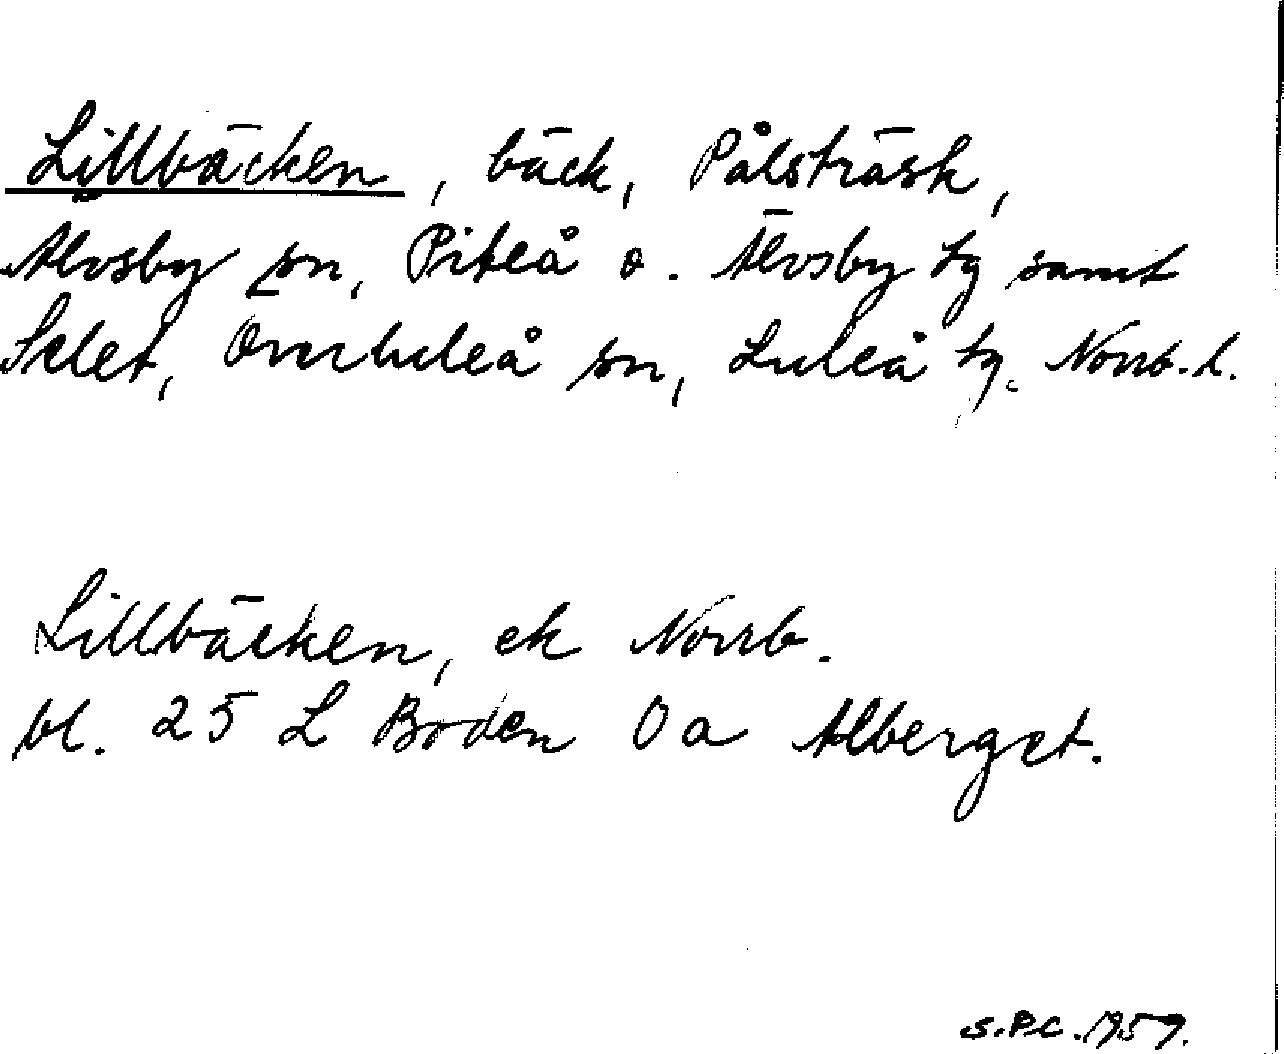 Lillbäcken, bäck, Pålsträsk,
Älvsby sn, Piteå o. Älvsby tg samt
Selet, Överluleå sn, Luleå tg. Norrb.l.
Lillbäcken, ek Norrb.
bl. 25 L Boden 0a Alberget.
S.P.C. 1959.